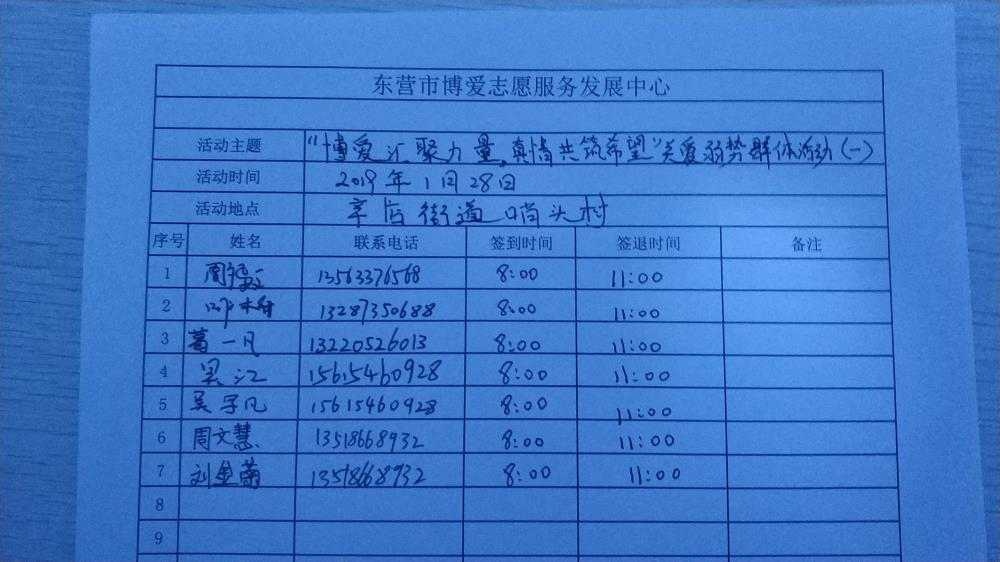 东营市博爱志愿服务发展中心
活动主题 "博爱汇聚力量,真情共筑希望"关爱弱势群体活动(一)
活动时间 2019年1月28日
活动地点 辛店街道哨头村
序号 姓名 联系电话 签到时间 签退时间 备注
1 周 13563376568 8:00 11:00
2 13287350688 8:00 11:00
3 葛一凡 13220526013 8:00 11:00
4 吴江 15615460928 8:00 11:00
5 吴宇凡 15615460928 8:00 11:00
6 周文慧 13518668932 8:00 11:00
7 刘金菊 13518668932 8:00 11:00
8
9